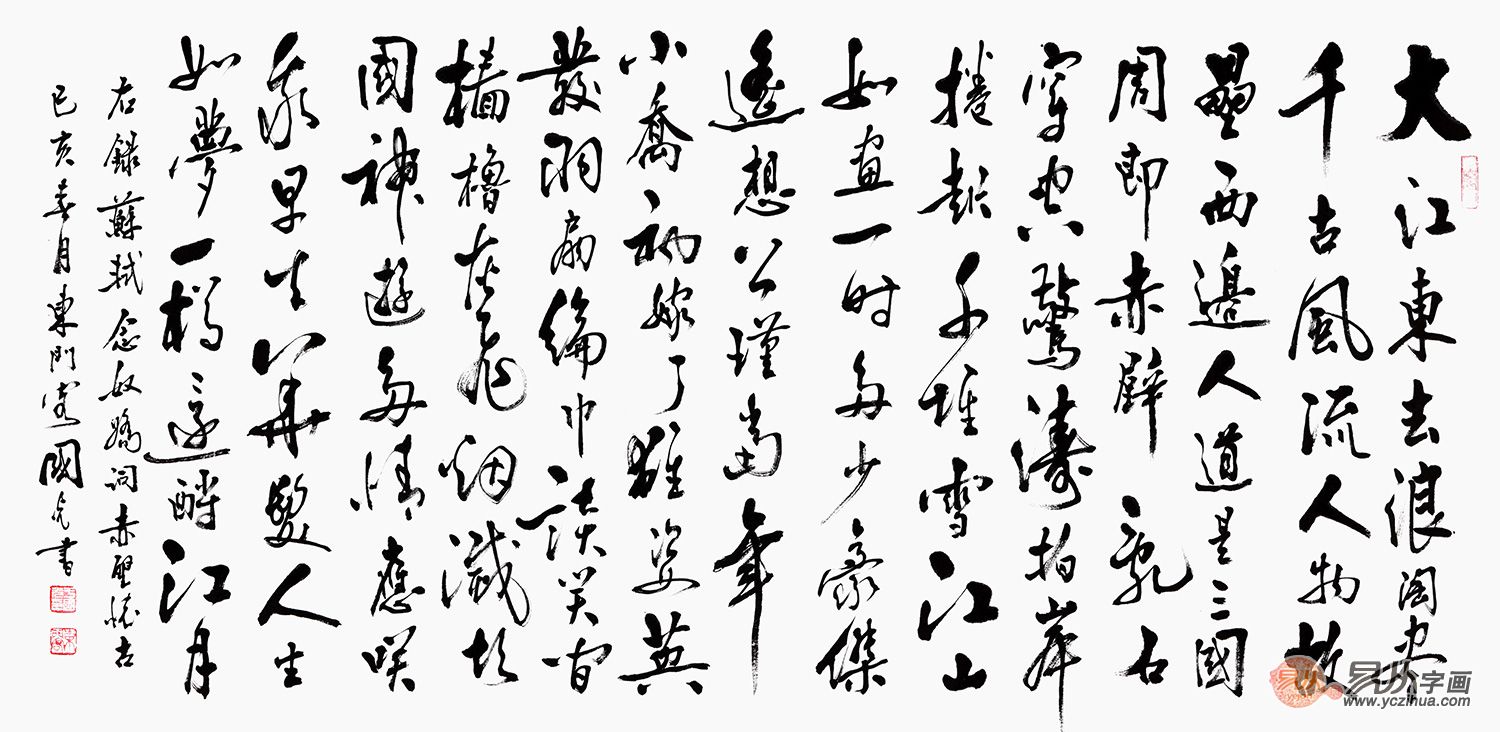 大江東去浪淘尽
千古風流人物故
壘西邊人道是三國
周郎赤壁乱石
穿空驚濤拍岸
捲起千堆雪江山
如畫一时多少豪傑
遙想公瑾當年
小喬初嫁了雄姿英
發羽扇綸巾談笑间
檣櫓灰飛烟滅故
國神遊多情應咲
我早生華髮人生
如夢一樽還酹江月
右錄蘇軾念奴嬌詞赤壁懷古
己亥春月東門客國亮書
易从字画
www.yczihua.com